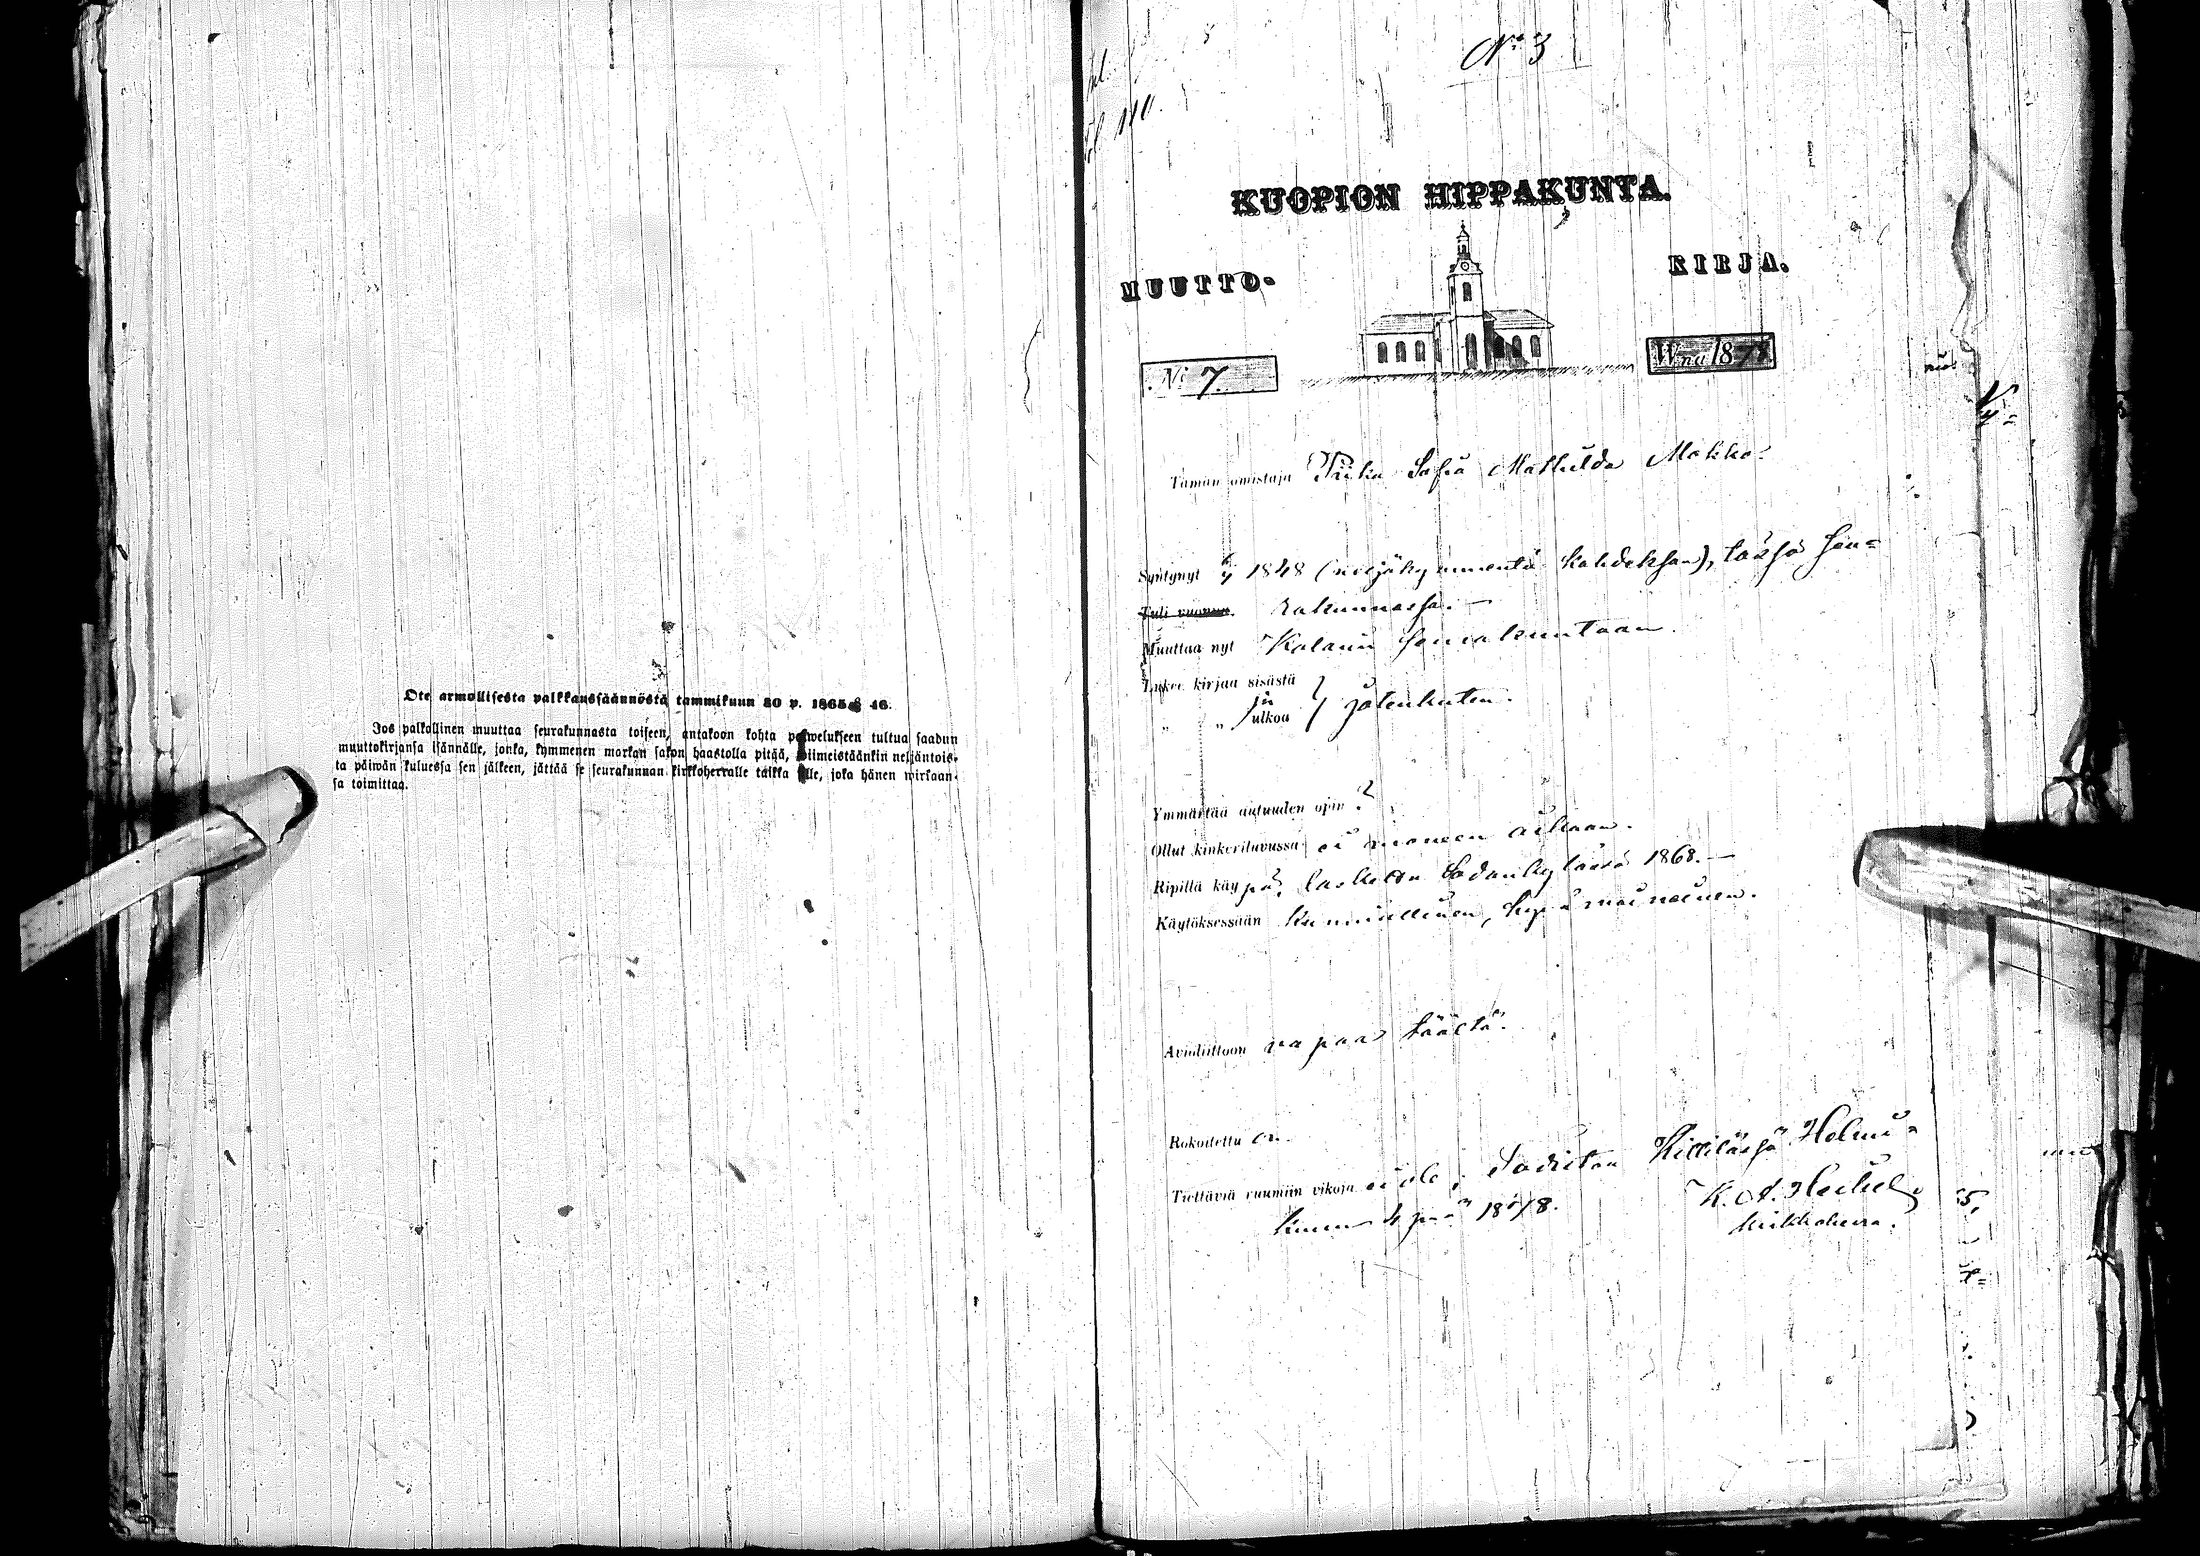 Ote armollisesta palkkaussäännöstä tammikuun 30 p. 1865 § 46.
Jos palkollinen muuttaa seurakunnasta toiseen, antakoon kohta palwelukseen tultua saadun
muuttokirjansa isännälle, jonka, kymmenen markan sakon haastolla pitää, wiimeistäänkin neljäntois-
ta päiwän kuluessa sen jälkeen, jättää se seurakunnan kirkkoherralle taikka sille, joka hänen wirkaan-
sa toimittaa.
No 3
110.
KUOPION HIPPAKUNTA.
MUUTTO- KIRJA.
No 7. W:na 1878
Tämän omistaja Piika Sofia Mathilda Makko.
Syntynyt 1848 (neljäkymmentä kahdeksan), tässä seu=
Tuli vuonna rakunnassa.—
Muuttaa nyt Kolarin seurakuntaan.
Lukee kirjaa sisästä
ja
„ „ ulkoa } jotenkuten.
Ymmärtää autuuden opin ?
Ollut kinkeriluvussa ei moneen aikaan.
Ripillä käypä, laskettu Sodankylässä 1868.—
Käytöksessään kunniallinen, hyvämaineinen.
Avioliittoon vapaa täältä.
Rokotettu on.
Tiettäviä ruumiin vikoja ei ole; Todistaa Kittilässä Helmi=
kuun 4 p:nä 1878.
K. A. Heikel,
kirkkoherra.